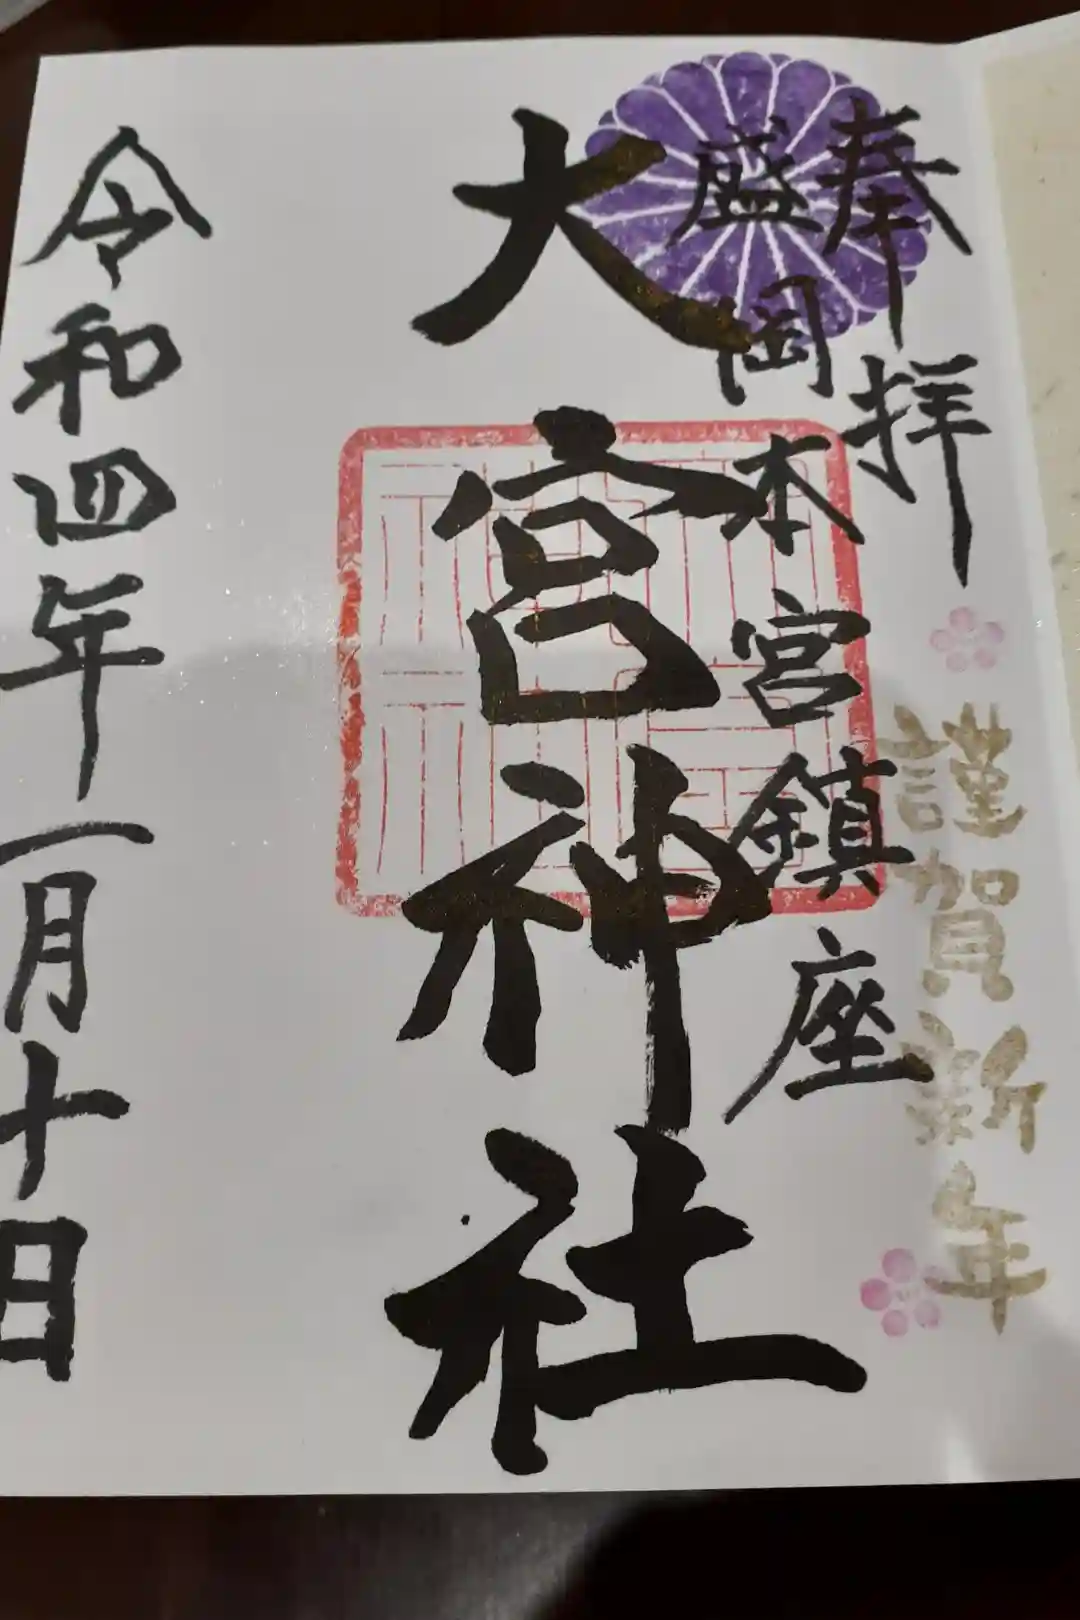 謹賀新年
奉拝
盛岡本宮鎮座
大宮神社
令和四年一月十日